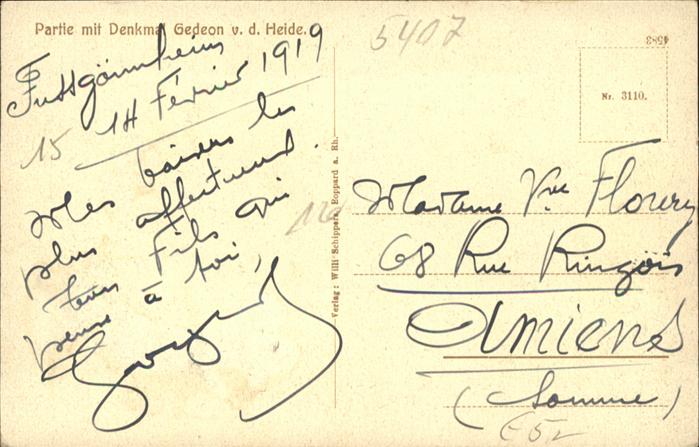 Partie mit Denkmal Gedeon v. d. Heide.
5407
4583
Fussgönnheim
14 Février 1919
15
Mes baisers les
plus affectueux.
ton Fils qui
pense à toi,
Georges
Verlag: Willi Schippers, Boppard a. Rh.
Nr. 3110.
Madame Vve Fleury
68 Rue Ringois
Amiens
(Somme)